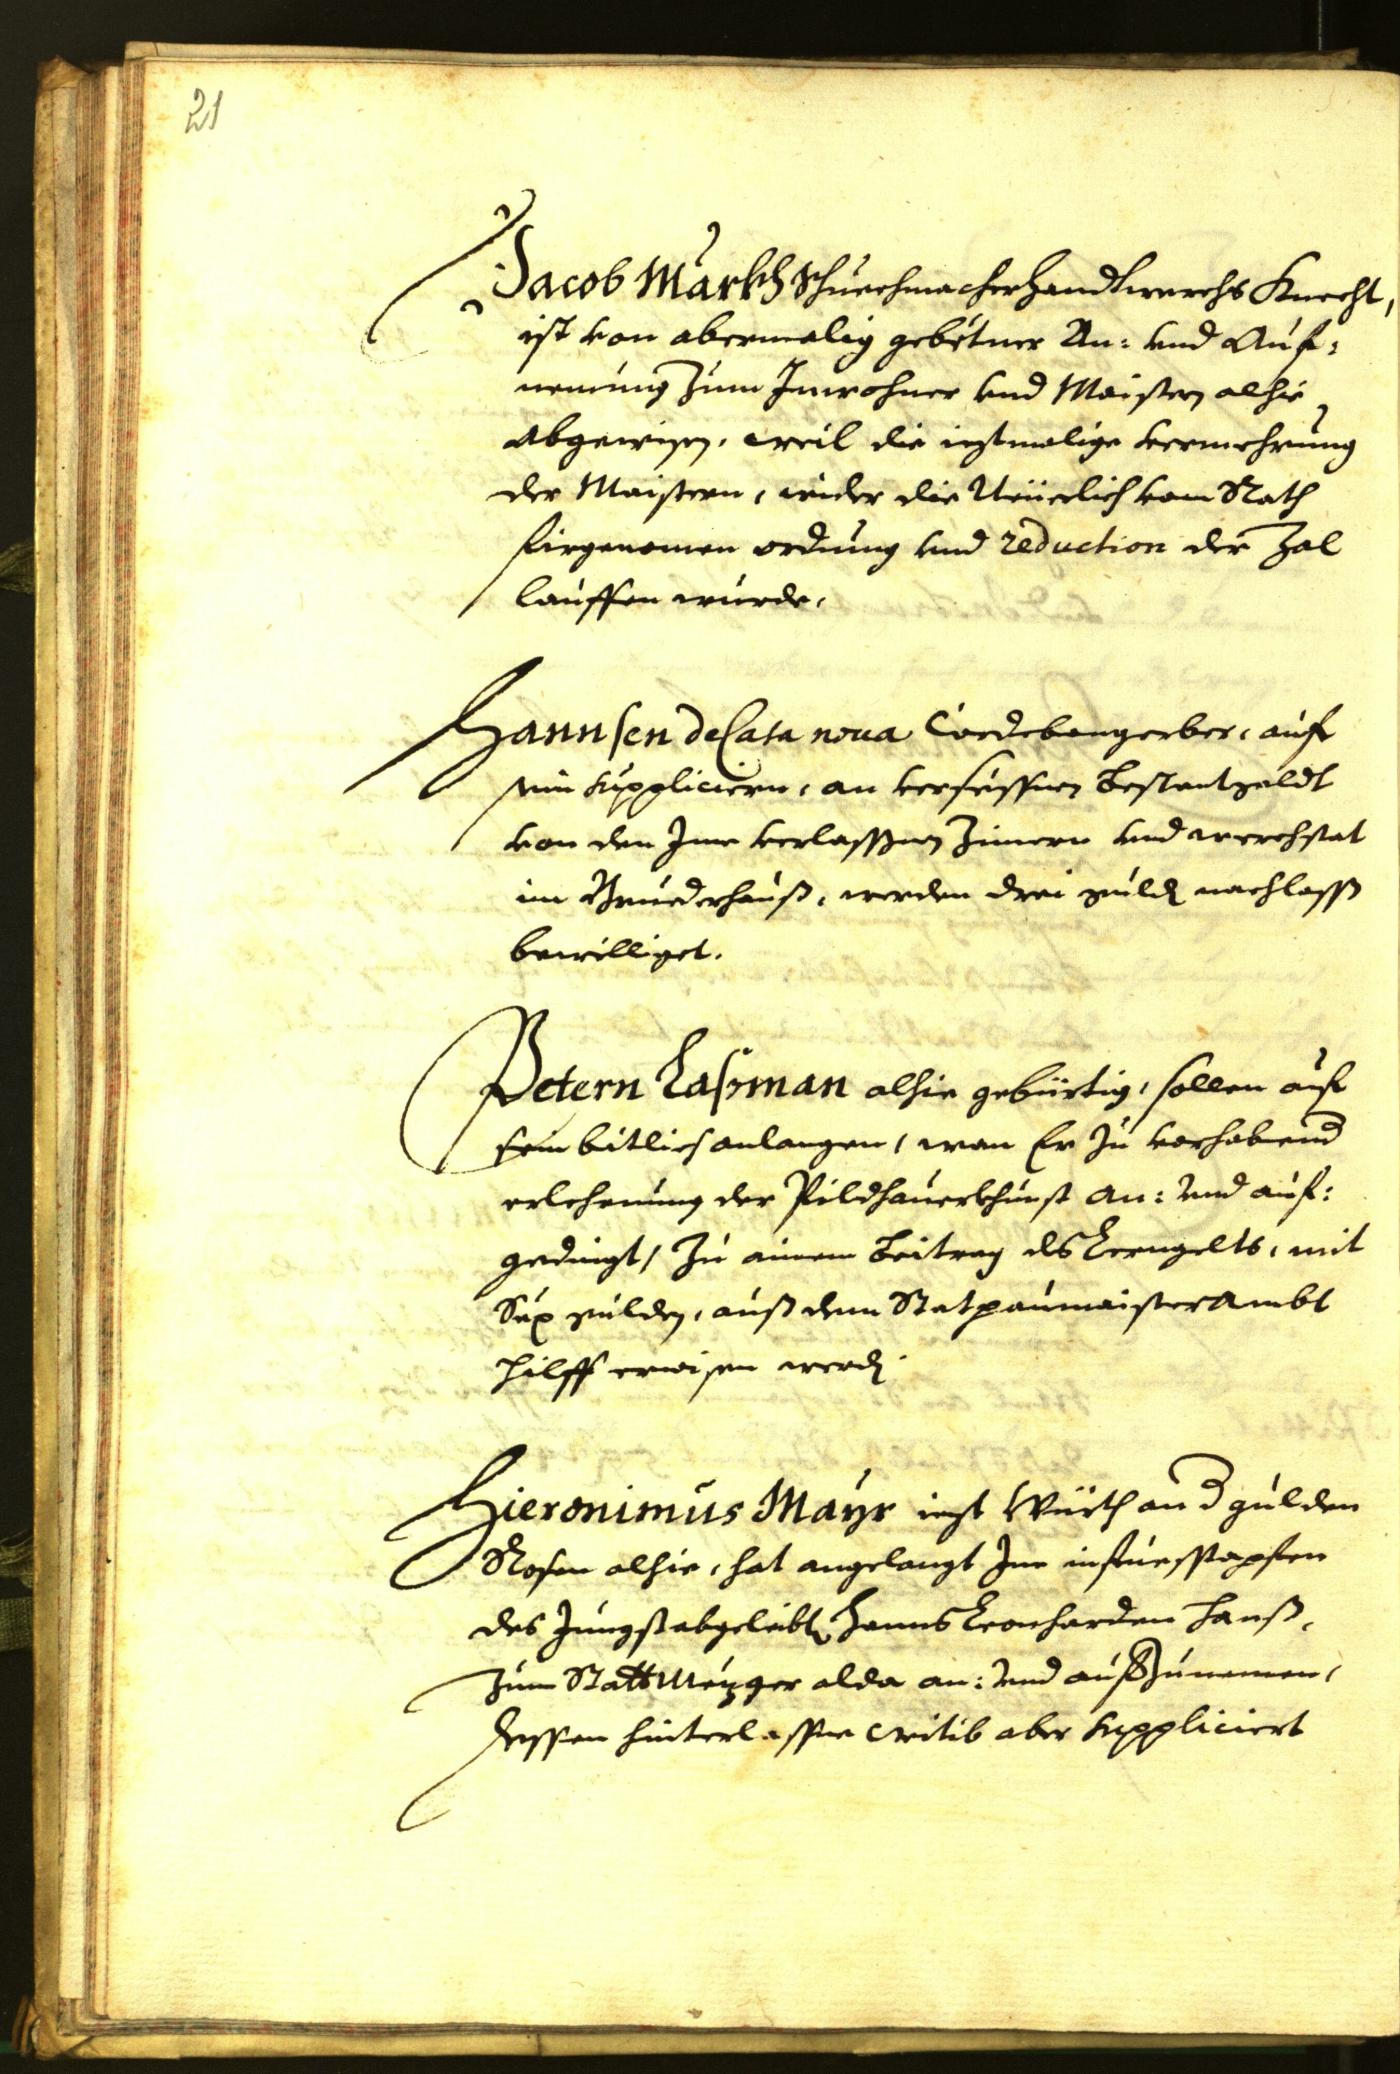 21
Jacob Markh Schuechmacherhandtwerchs Knecht,
ist von abermalig gebetner An: vnd Auf:
nemung zum Inwohner vnd Maister alhie
abgewisen, weil die ieztmalige vermehrung
der Maistern, wider die Neüerlich vom Rath
firgenomen ordnung vnd reduction der Zal
lauffen wurde.
Hannsen de Casa noua Cordebangerber, auf
sein suppliciern, an versessnen Bestantgeldt
von den Ime verlassnen Zimern vnd werchstat
im Bruederhauß, werden drei guld nachlass
bewilliget.
Petern Laßman alhie gebürtig, sollen auf
sein bitlich anlangen, wan Er zu vorhabend
erlehrnung der Pildhauerkhunst an: vnd auf:
gedingt, zu ainem Beitrag des Lerngelts, mit
Sex gulden, auß dem Statpaumaisterambt
hilff erwisen werd.
Hieronimus Mayr iezt Würth an d gulden
Rosen alhie, hat angelangt Ine in fuesstapfen
des Jungst abgeleibt Hanns Leonharden Hanß,
zum Statt Mezger alda an: vnd aufzunemen,
dessen hinterlassne witib aber suppliciert